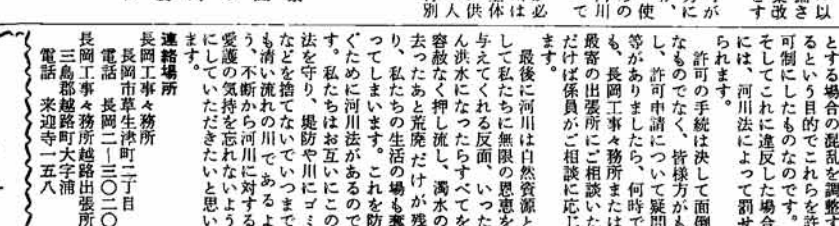 とする場合の混乱を調整す
るという目的でこれらを許
可制にしたものなのです。
そしてこれに違反した場合
には、河川法によって罰せ
られます。
許可の手続は決して面倒
なものでなく、皆様方がも
し、許可申請について疑問
等がありましたら、何時で
も、長岡工事々務所または
最寄の出張所にご相談いた
だけば係員がご相談に応じ
ます。
最後に河川は自然資源と
して私たちに無限の恩恵を
与えてくれる反面、いった
ん洪水になったらすべてを
容赦なく押し流し、濁水の
去ったあと荒廃だけが残
り、私たちの生活の場も奪
ってしまいます。これを防
ぐために河川法があるので
す。私たちはお互いにこの
法を守り、堤防や川にゴミ
などを捨てないでいつまで
も清い流れの川であるよ
う、不断から河川に対する
愛護の気持を忘れないよう
にしていただきたいと思い
ます。
連絡場所
長岡工事々務所
長岡市草生津町二丁目
電話 長岡二ー三〇二〇
長岡工事々務所越路出張所
三島郡越路町大字浦
電話 来迎寺一五八